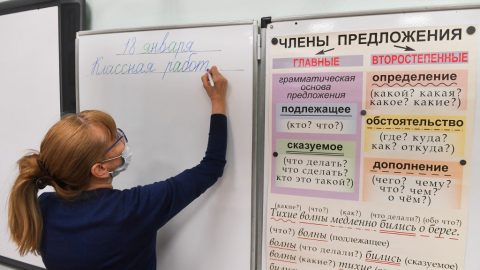 18 января
Классная работ
ЧЛЕНЫ ПРЕДЛОЖЕНИЯ
ГЛАВНЫЕ
грамматическая
основа
предложения
подлежащее
(кто? что?)
сказуемое
(что делать?
что сделать?
кто это такой?)
ВТОРОСТЕПЕННЫЕ
определение
(какой? какая?
какое? какие?)
обстоятельство
(где? куда?
как? откуда?)
дополнение
(чего? чему?
что? чем?
о чём?)
(какие?) (что?) (как?) (что делали?) (обо что?)
Тихие волны медленно бились о берег.
(что?) волны (подлежащее)
волны (что делали?) бились (сказуемое)
волны (какие?) тихие